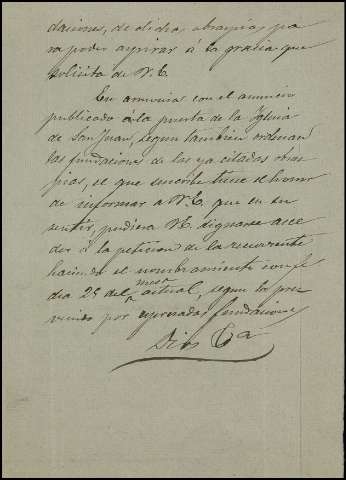 daciones, de dichas obras pias, pa
ra poder aspirar á la gracia que
solicita de V.E.
En armonia con el anuncio
publicado a la puerta de la Iglesia
de San Juan, segun tambien ordenan
las fundaciones de las ya citadas obras
pias, el que suscribe tiene el honor
de informar a V.E. que en su
sentir, pudiera V.E. dignarse acce
der á la peticion de la recurrente
haciendo el nombramiento con el
dia 25 del mes actual, segun lo pre
venido por espresadas fundaciones
Dios &a